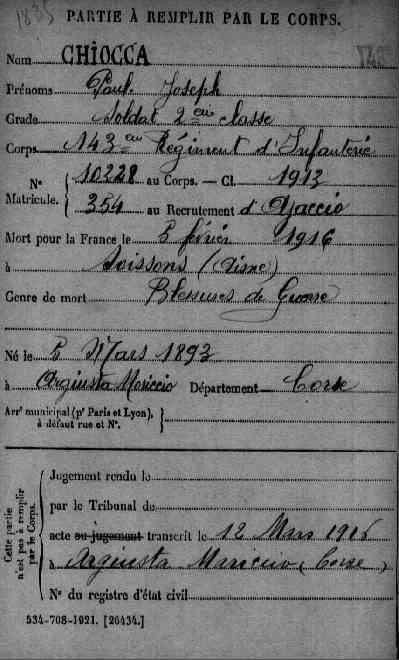 1835
PARTIE À REMPLIR PAR LE CORPS.
Nom CHIOCCA
Prénoms Paul Joseph
Grade Soldat 2eme classe
Corps 143eme Régiment d'Infanterie
N° Matricule. { 10228 au Corps. — Cl. 1913
354 au Recrutement d'Ajaccio
Mort pour la France le 8 février 1916
à Soissons (Aisne)
Genre de mort Blessures de Guerre
Né le 8 Mars 1893
à Argiusta Moriccio Département Corse
Arr' municipal (p' Paris et Lyon), à défaut rue et N°. }
Cette partie n'est pas à remplir par le Corps. {
Jugement rendu le
par le Tribunal de
acte ou jugement transcrit le 12 Mars 1916
à Argiusta Moriccio (Corse)
N° du registre d'état civil
534-708-1921. [26434.]